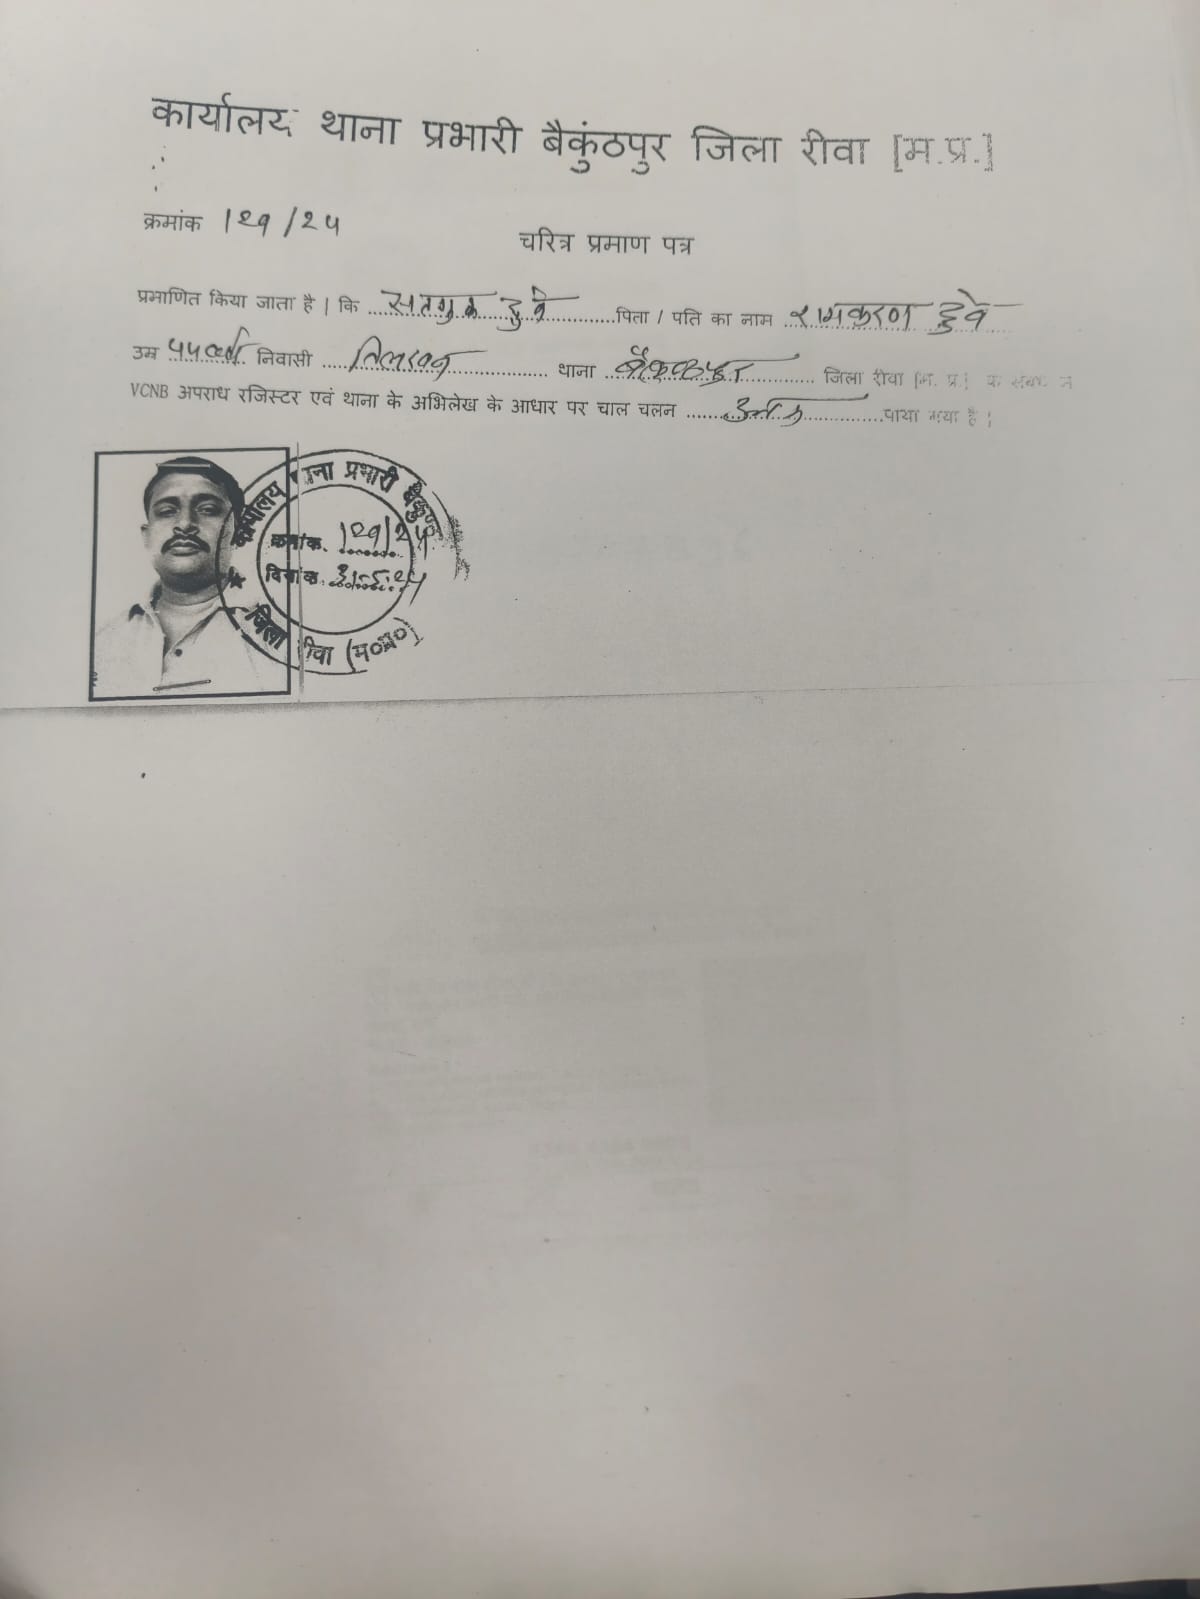 कार्यालय थाना प्रभारी बैकुंठपुर जिला रीवा [म.प्र.]
क्रमांक 129/25
चरित्र प्रमाण पत्र
प्रमाणित किया जाता है | कि ........ दुबे ............पिता / पति का नाम रामकरण दुबे
उम्र ५५ वर्ष निवासी ............ थाना बैकुण्ठपुर ............ जिला रीवा [म. प्र.]
VCNB अपराध रजिस्टर एवं थाना के अभिलेख के आधार पर चाल चलन ............पाया गया है |
कार्यालय थाना प्रभारी बैकुण्ठ
क्रमांक. 129/25
दिनांक.
जिला रीवा (म०प्र०)